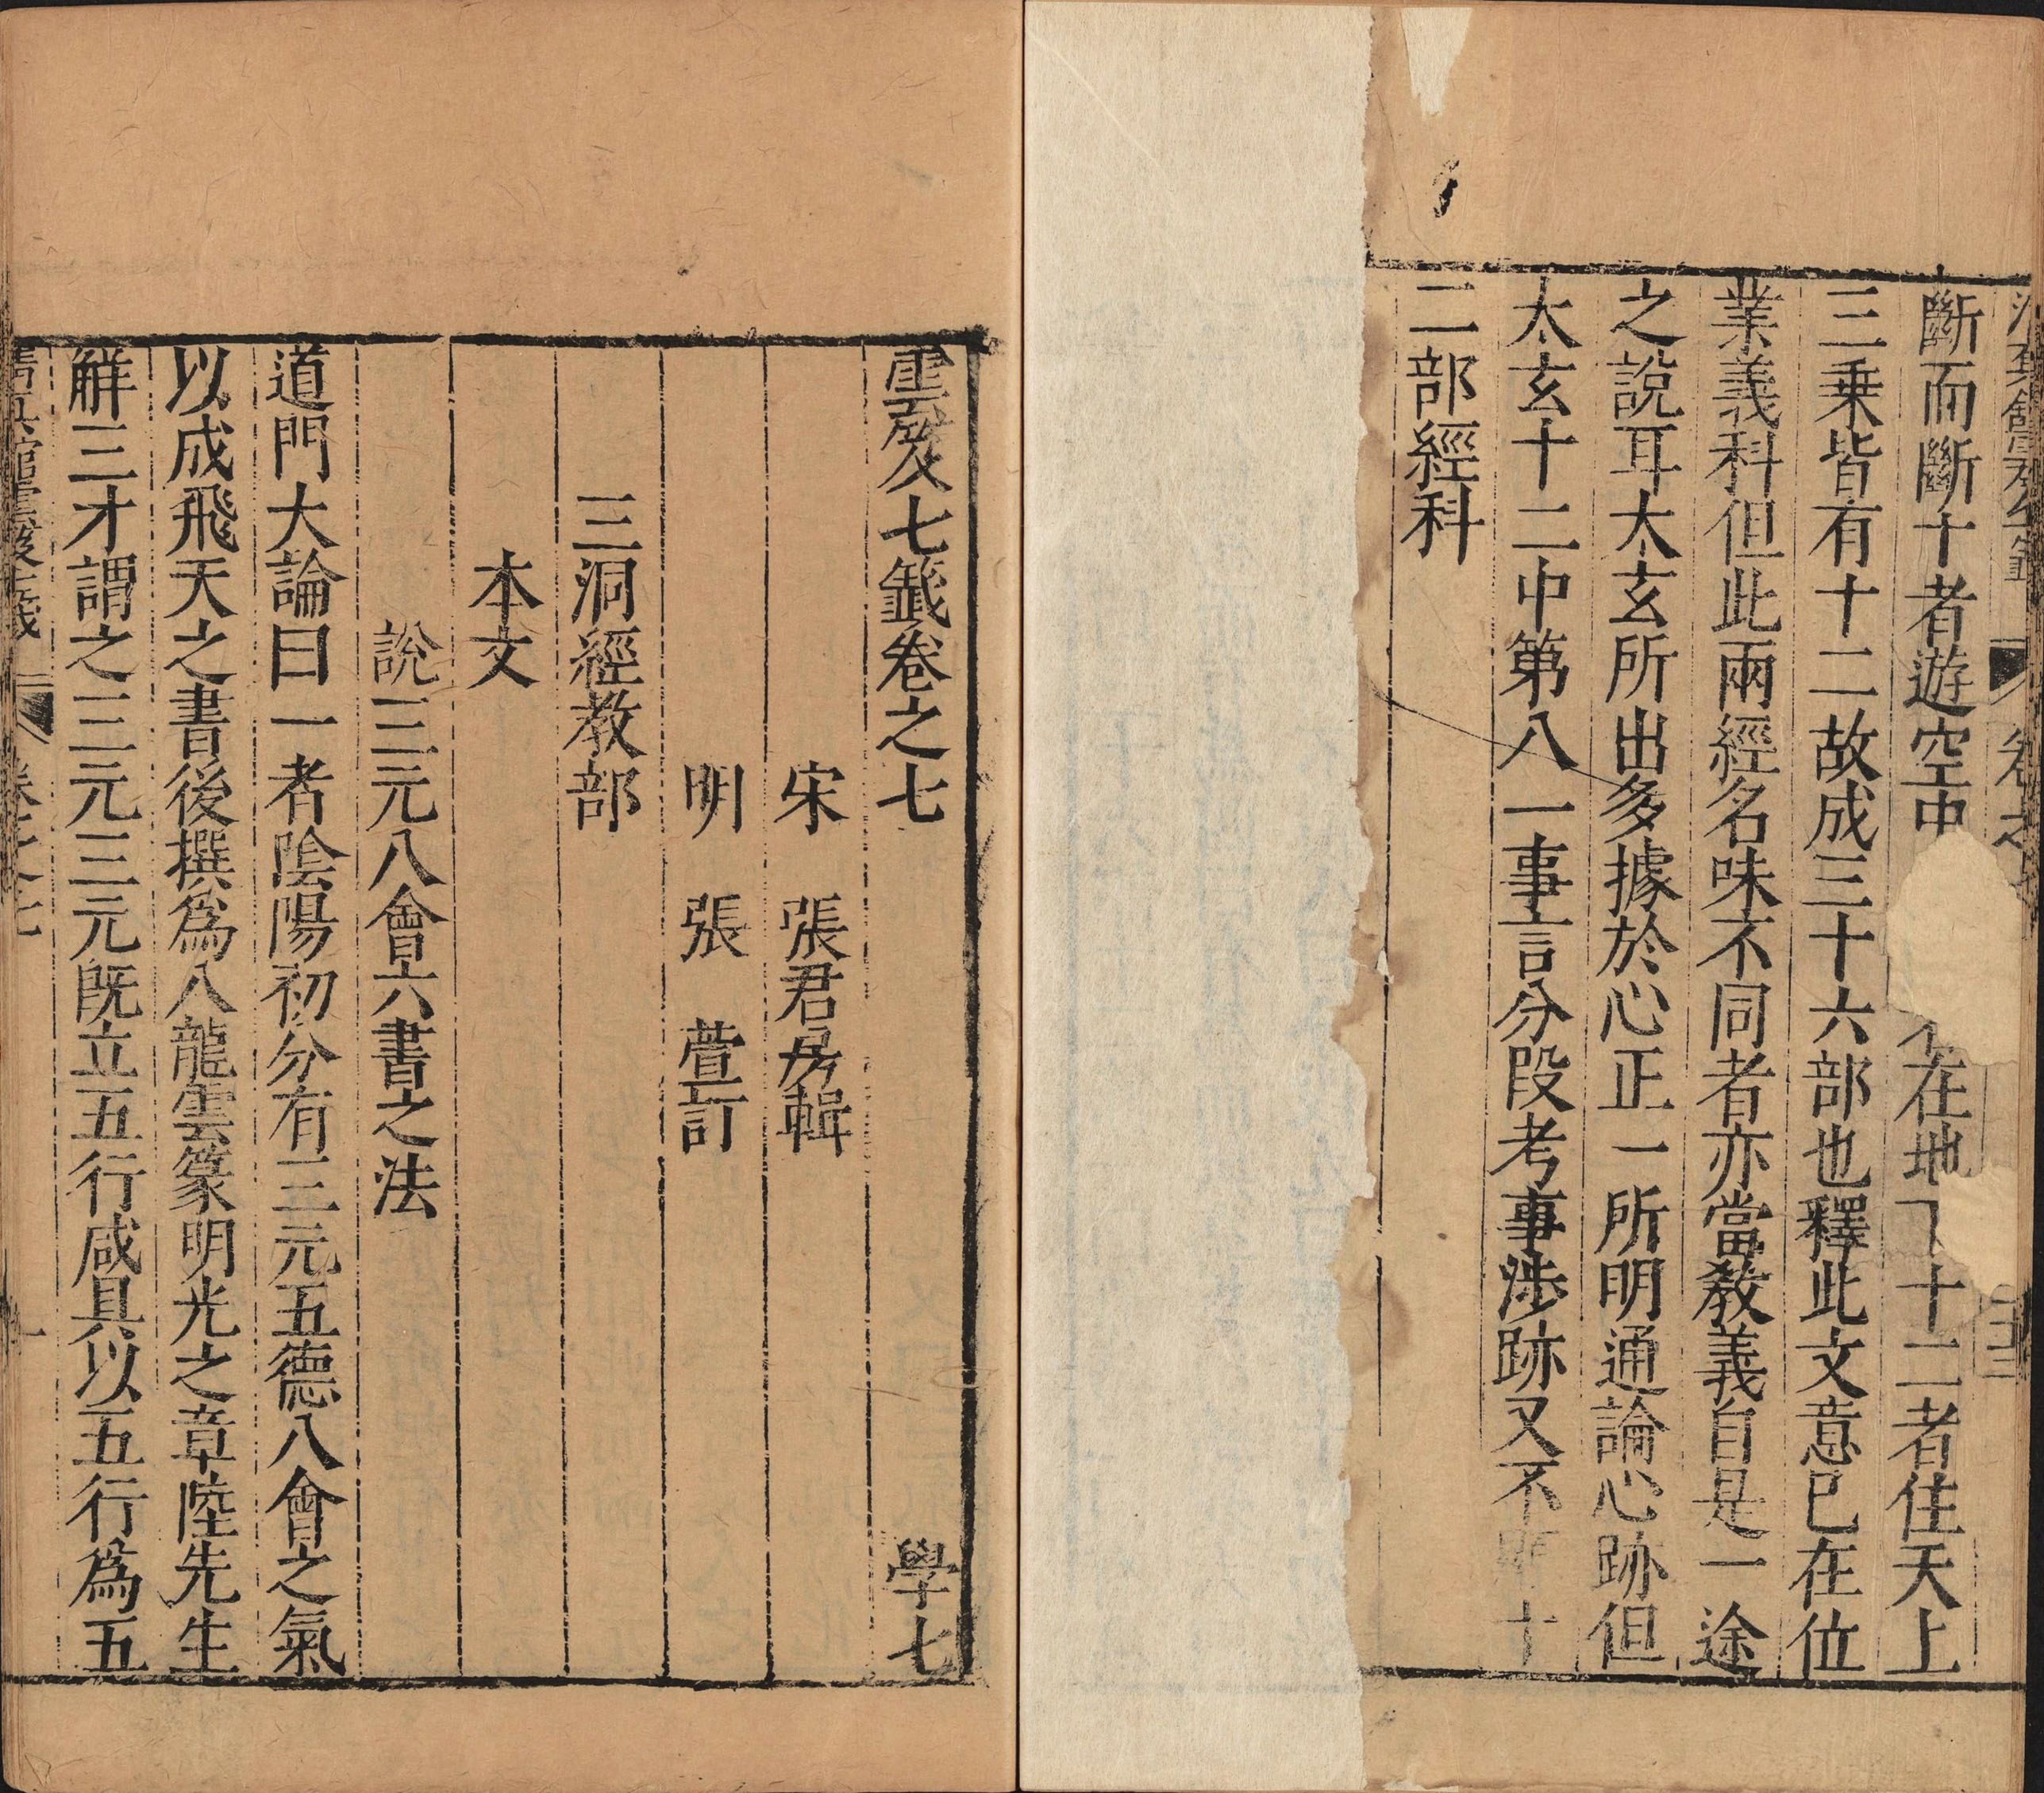 斷而斷十者遊空中在地十二者住天上
三乗皆有十二故成三十六部也釋此文意已在位
業義科但此兩經名味不同者亦當教義自是一途
之說耳太玄所出多據於心正一所明通論心跡但
太玄十二中第八一事言分段考事涉跡又不十
二部經科
雲笈七籤卷之七　學七
宋　張君房輯
明　張　萱訂
三洞經教部
本文
說三元八會六書之法
道門大論曰一者陰陽初分有三元五德八會之氣
以成飛天之書後撰爲八龍雲篆明光之章陸先生
解三才謂之三元三元既立五行咸具以五行爲五
卷之七